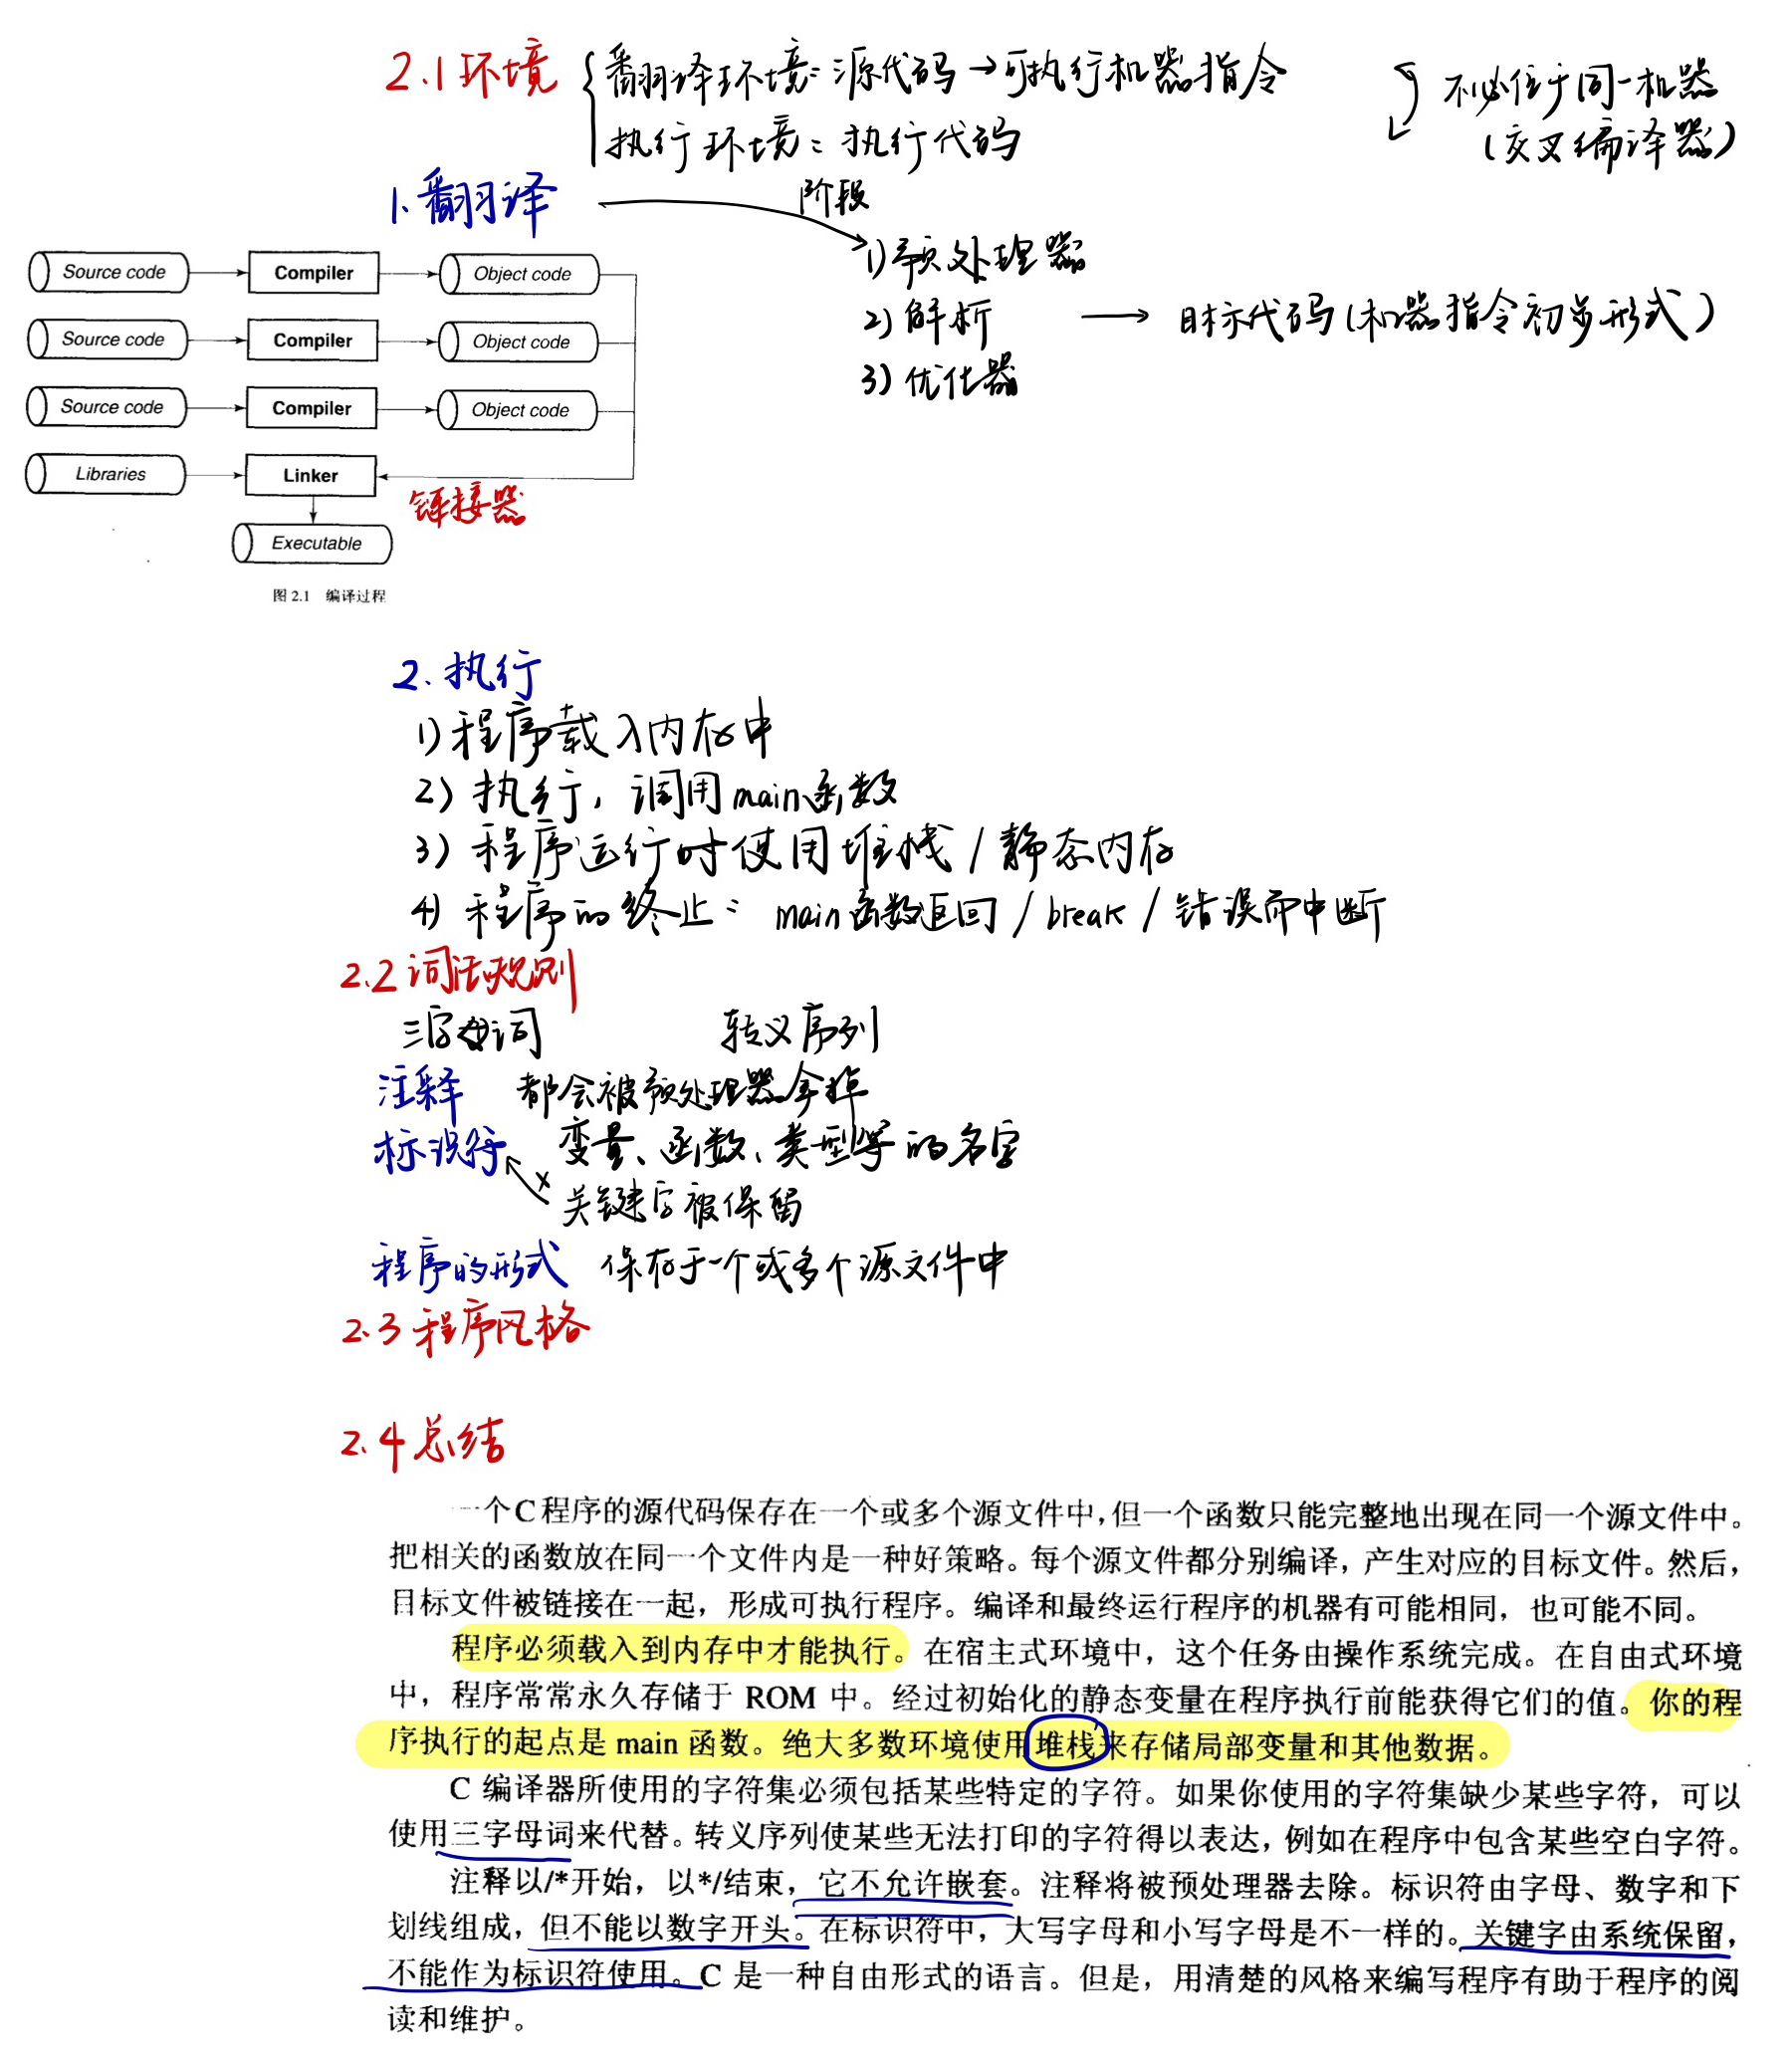 2.1 环境 { 翻译环境: 源代码 → 可执行机器指令
不必位于同一机器
执行环境: 执行代码
(交叉编译器)
1. 翻译
阶段
1) 预处理器
2) 解析 → 目标代码(机器指令初步形式)
3) 优化器
Source code Compiler Object code
Source code Compiler Object code
Source code Compiler Object code
Libraries Linker
链接器
Executable
图 2.1 编译过程
2. 执行
1) 程序载入内存中
2) 执行, 调用main函数
3) 程序运行时使用堆栈 / 静态内存
4) 程序的终止: main函数返回 / break / 错误而中断
2.2 词法规则
三字母词 转义序列
注释 都会被预处理器拿掉
标识符 变量、函数、类型等的名字
x 关键字被保留
程序的形式 保存于一个或多个源文件中
2.3 程序风格
2.4 总结
一个C程序的源代码保存在一个或多个源文件中,但一个函数只能完整地出现在同一个源文件中。
把相关的函数放在同一个文件内是一种好策略。每个源文件都分别编译,产生对应的目标文件。然后,
目标文件被链接在一起,形成可执行程序。编译和最终运行程序的机器有可能相同,也可能不同。
程序必须载入到内存中才能执行。在宿主式环境中,这个任务由操作系统完成。在自由式环境
中,程序常常永久存储于 ROM 中。经过初始化的静态变量在程序执行前能获得它们的值。你的程
序执行的起点是 main 函数。绝大多数环境使用堆栈来存储局部变量和其他数据。
C 编译器所使用的字符集必须包括某些特定的字符。如果你使用的字符集缺少某些字符,可以
使用三字母词来代替。转义序列使某些无法打印的字符得以表达,例如在程序中包含某些空白字符。
注释以/*开始,以*/结束,它不允许嵌套。注释将被预处理器去除。标识符由字母、数字和下
划线组成,但不能以数字开头。在标识符中,大写字母和小写字母是不一样的。关键字由系统保留,
不能作为标识符使用。C 是一种自由形式的语言。但是,用清楚的风格来编写程序有助于程序的阅
读和维护。